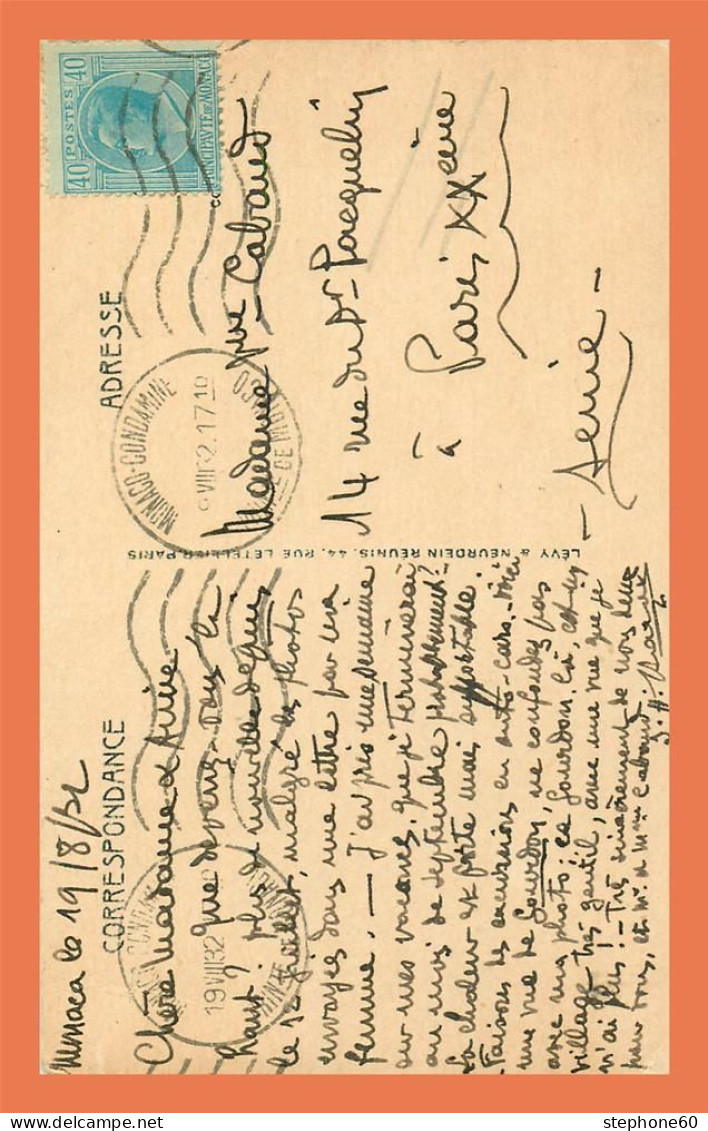 Monaco le 19/8/32
CORRESPONDANCE
Chère Madame & Amie
Que devenez-vous là
haut ? plus de nouvelles depuis
le 12 juillet, malgré les photos
envoyées dans une lettre par ma
femme. — J'ai pris une semaine
sur mes vacances, que je terminerai
au mois de septembre probablement?
La chaleur est forte mais supportable.
Faisons des excursions en auto-cars. Voici
une vue de Gourdon, ne confondez pas
avec ma photo; ce Gourdon là, est un
village très gentil, avec une vue que je
n'ai plus! - Très sincèrement de nos deux
pour vous, et Mr. & Mme Cabaud.
LÉVY & NEURDEIN RÉUNIS, 44, RUE LETELLIER, PARIS
ADRESSE
Madame Vve Cabaud
14 rue du Dr Pacquelin
à Paris XXeme
- Seine -
POSTES
40 40
PRINCIPAUTÉ DE MONACO
MONACO-CONDAMINE
19 VIII 32 17 10
PTE DE MONACO
MONACO-CONDAMINE
19 VIII 32
stephone60